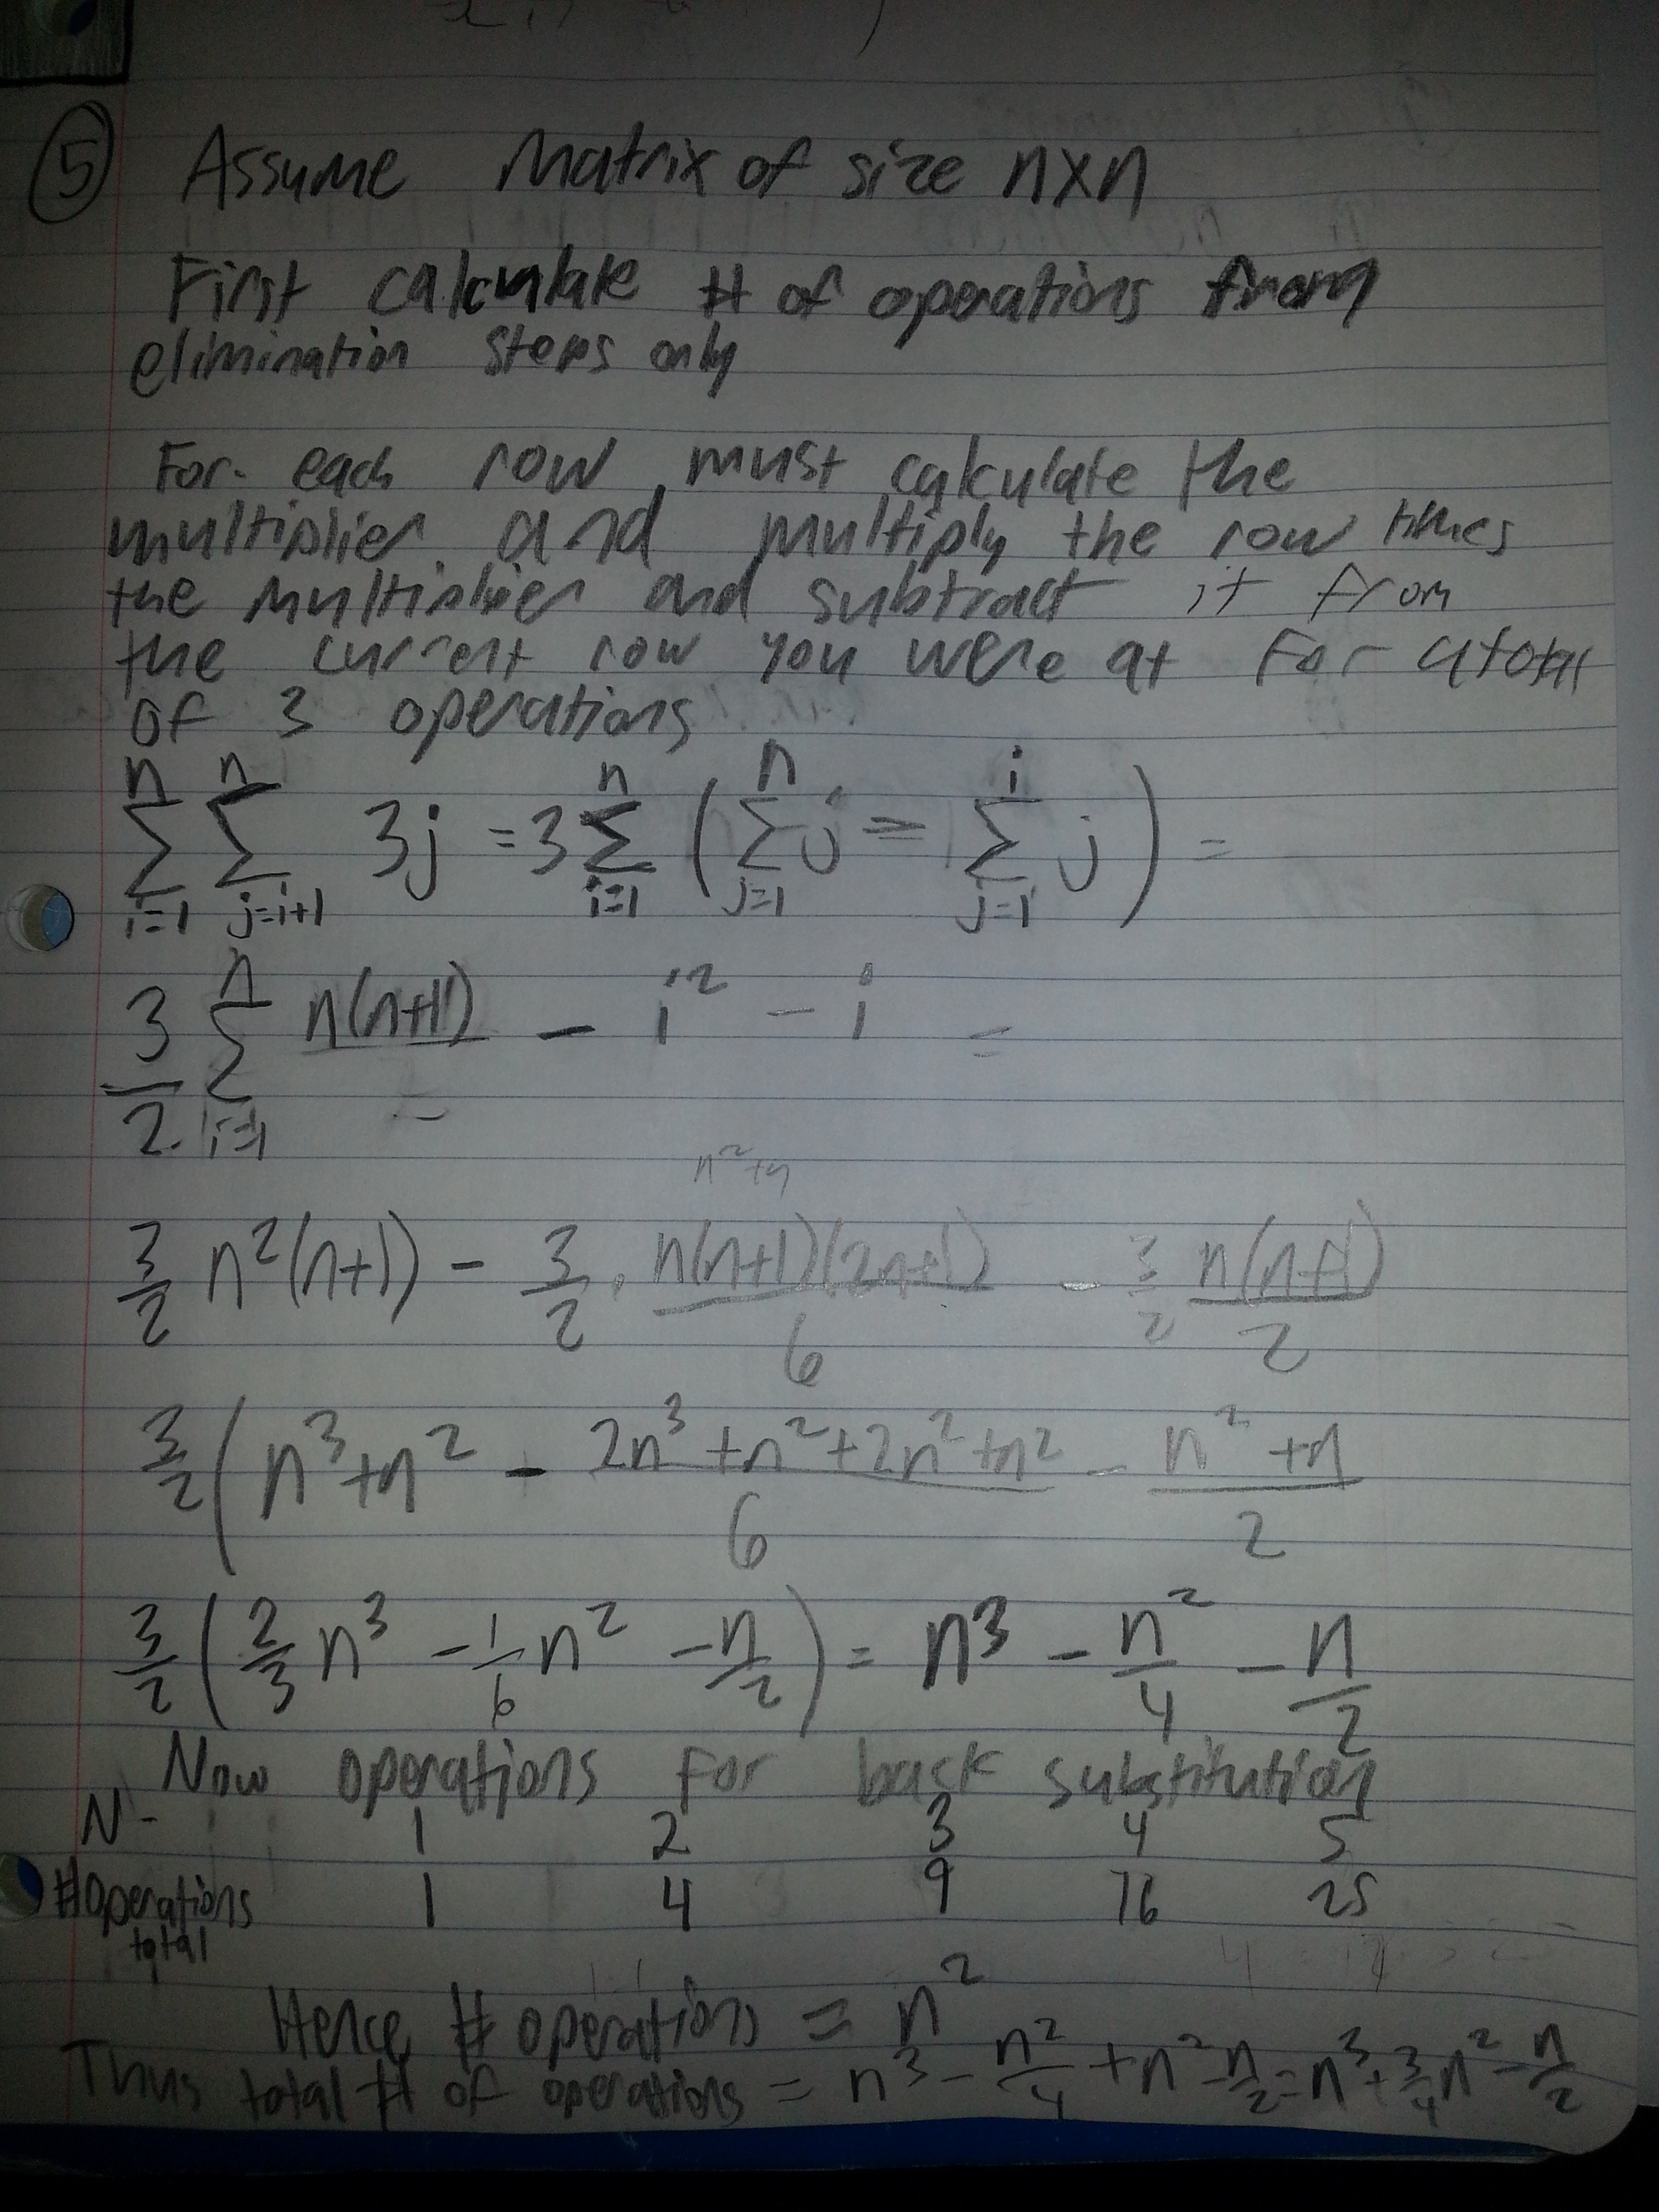 ⑤ Assume Matrix of size n×n
First calculate # of operations from
elimination steps only
For each row must calculate the
multiplier and multiply the row times
the multiplier and subtract it from
the current row you were at for a total
of 3 operations
\sum_{i=1}^{n} \sum_{j=i+1}^{n} 3j = 3 \sum_{i=1}^{n} ( \sum_{j=1}^{n} j - \sum_{j=1}^{i} j ) =
\frac{3}{2} \sum_{i=1}^{n} n(n+1) - i^2 - i =
n^2+n
\frac{3}{2} n^2(n+1) - \frac{3}{2} · \frac{n(n+1)(2n+1)}{6} - \frac{3}{2} \frac{n(n+1)}{2}
\frac{3}{2} ( n^3+n^2 - \frac{2n^3+n^2+2n^2+n^2}{6} - \frac{n^2+n}{2}
\frac{3}{2} ( \frac{2}{3} n^3 - \frac{1}{6} n^2 - \frac{n}{2} ) = n^3 - \frac{n^2}{4} - \frac{n}{2}
Now operations for back substitution
N - 1 2 3 4 5
# operations total 1 4 9 16 25
Hence # operations = n^2
Thus total # of operations = n^3 - \frac{n^2}{4} + n^2 - \frac{n}{2} = n^3 + \frac{3}{4} n^2 - \frac{n}{2}